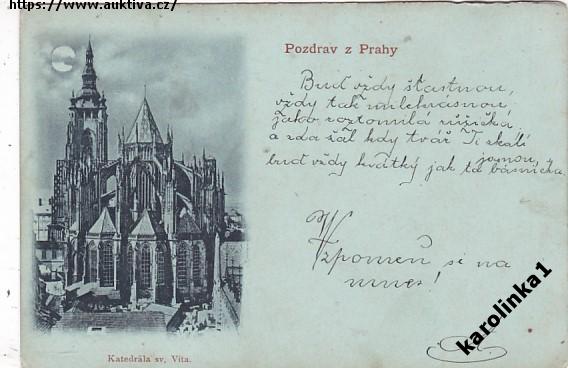 https://www.auktiva.cz/
Pozdrav z Prahy
Buď vždy šťastnou,
vždy tak milekrásnou,
jako roztomilá růžička,
a zda žal kdy tvář Ti zkalí
buď vždy krátký jak ta básnička
Vzpomeň si na
mne!
Katedrála sv. Víta.
karolinka1